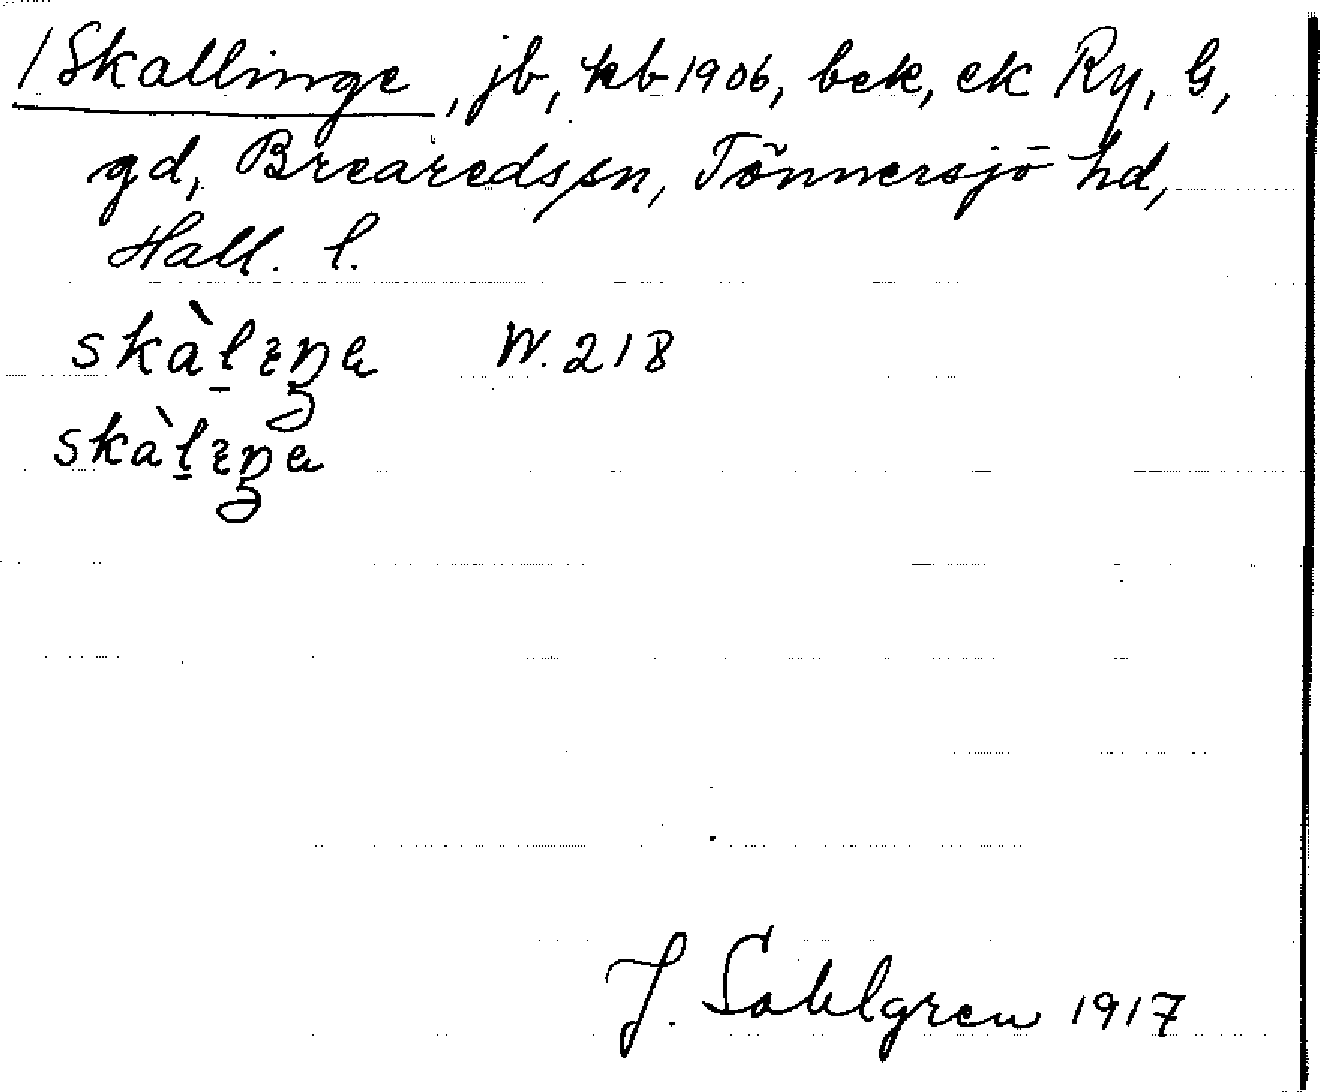 /Skallinge, jb, kb 1906, bek, ek Ry, G,
gd, Breareds sn, Tönnersjö hd,
Hall. l.
W. 218
J. Sahlgren 1917